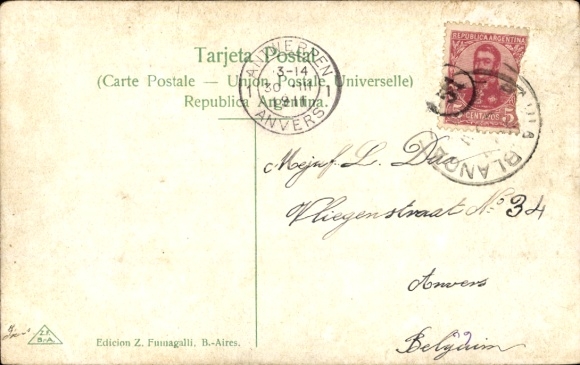 Tarjeta Postal
(Carte Postale — Union Postale Universelle)
Republica Argentina.
ANTWERPEN
3-14
30 III
1911
ANVERS
REPUBLICA ARGENTINA
5
CENTAVOS
BLANCA
Mejuf. L.
Vliegenstraat No 34
Anvers
Belgium
Z.F.
B-A.
Edicion Z. Fumagalli, B.-Aires.